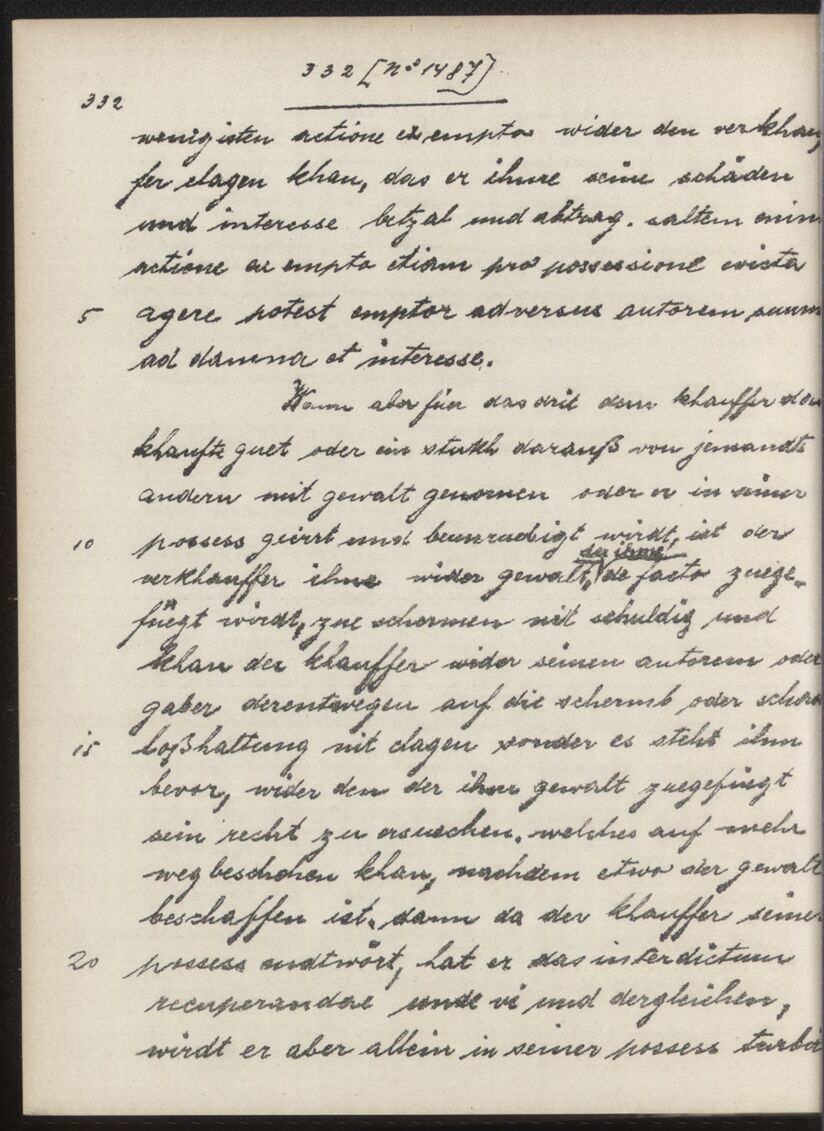 332 [No 1487]
332
wenigisten actione ex empto wider den verkhau,
fer clagen khan, das er ihme seine schäden
und interesse betzal und abtrag. saltem enim
actione ex empto etiam pro possessione evicta
5 agere potest emptor adversus autorem suum
ad damna et interesse.
Wann aber für das drit dem khauffer das
khaufte guet oder ein stukh darauß von jemandts
andern mit gewalt genomen oder er in seiner
10 possess geirrt und beunruedigt wirdt, ist der
verkhauffer ihme wider gewalt, de facto zuege-
so ihme
füegt wirdt, zue schermen nit schuldig und
khan der khauffer wider seinen autorem oder
gaber derentwegen auf die schermb oder schad
15 loßhaltung nit clagen sonder es steht ihm
bevor, wider den der ihm gewalt zuegefüegt
sein recht zu ersuechen, welches auf mehr
weg beschehen khan, nachdem etwo der gewalt
beschaffen ist. dann da der khauffer seiner
20 possess endtwört, hat er das interdictum
recuperandae unde vi und dergleichen,
wirdt er aber allein in seiner possess turbi